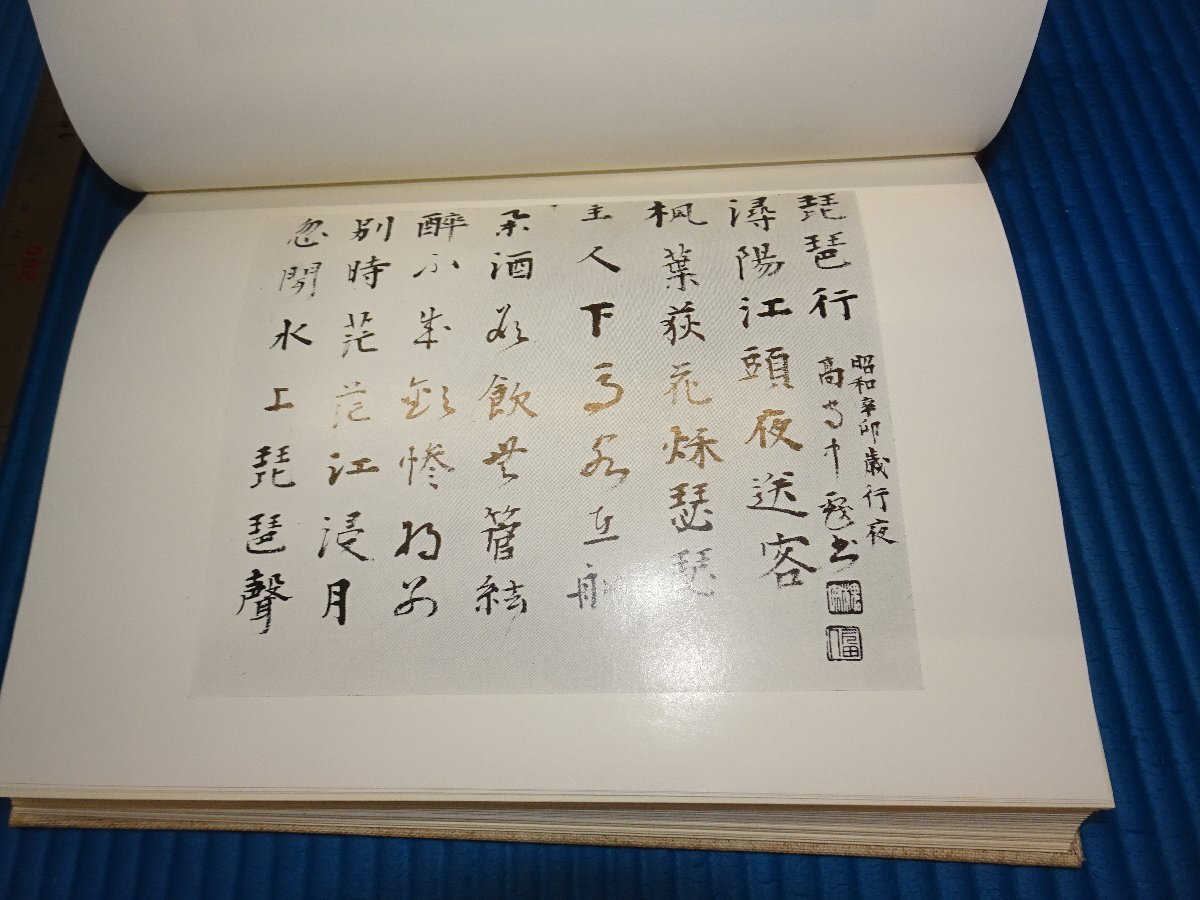 琵琶行
昭和辛卯歳行夜
高書
潯陽江頭夜送客
楓葉荻花秌瑟瑟
主人下馬客在船
舉酒欲飲無管絃
醉不成歡慘將別
別時茫茫江浸月
忽聞水上琵琶聲